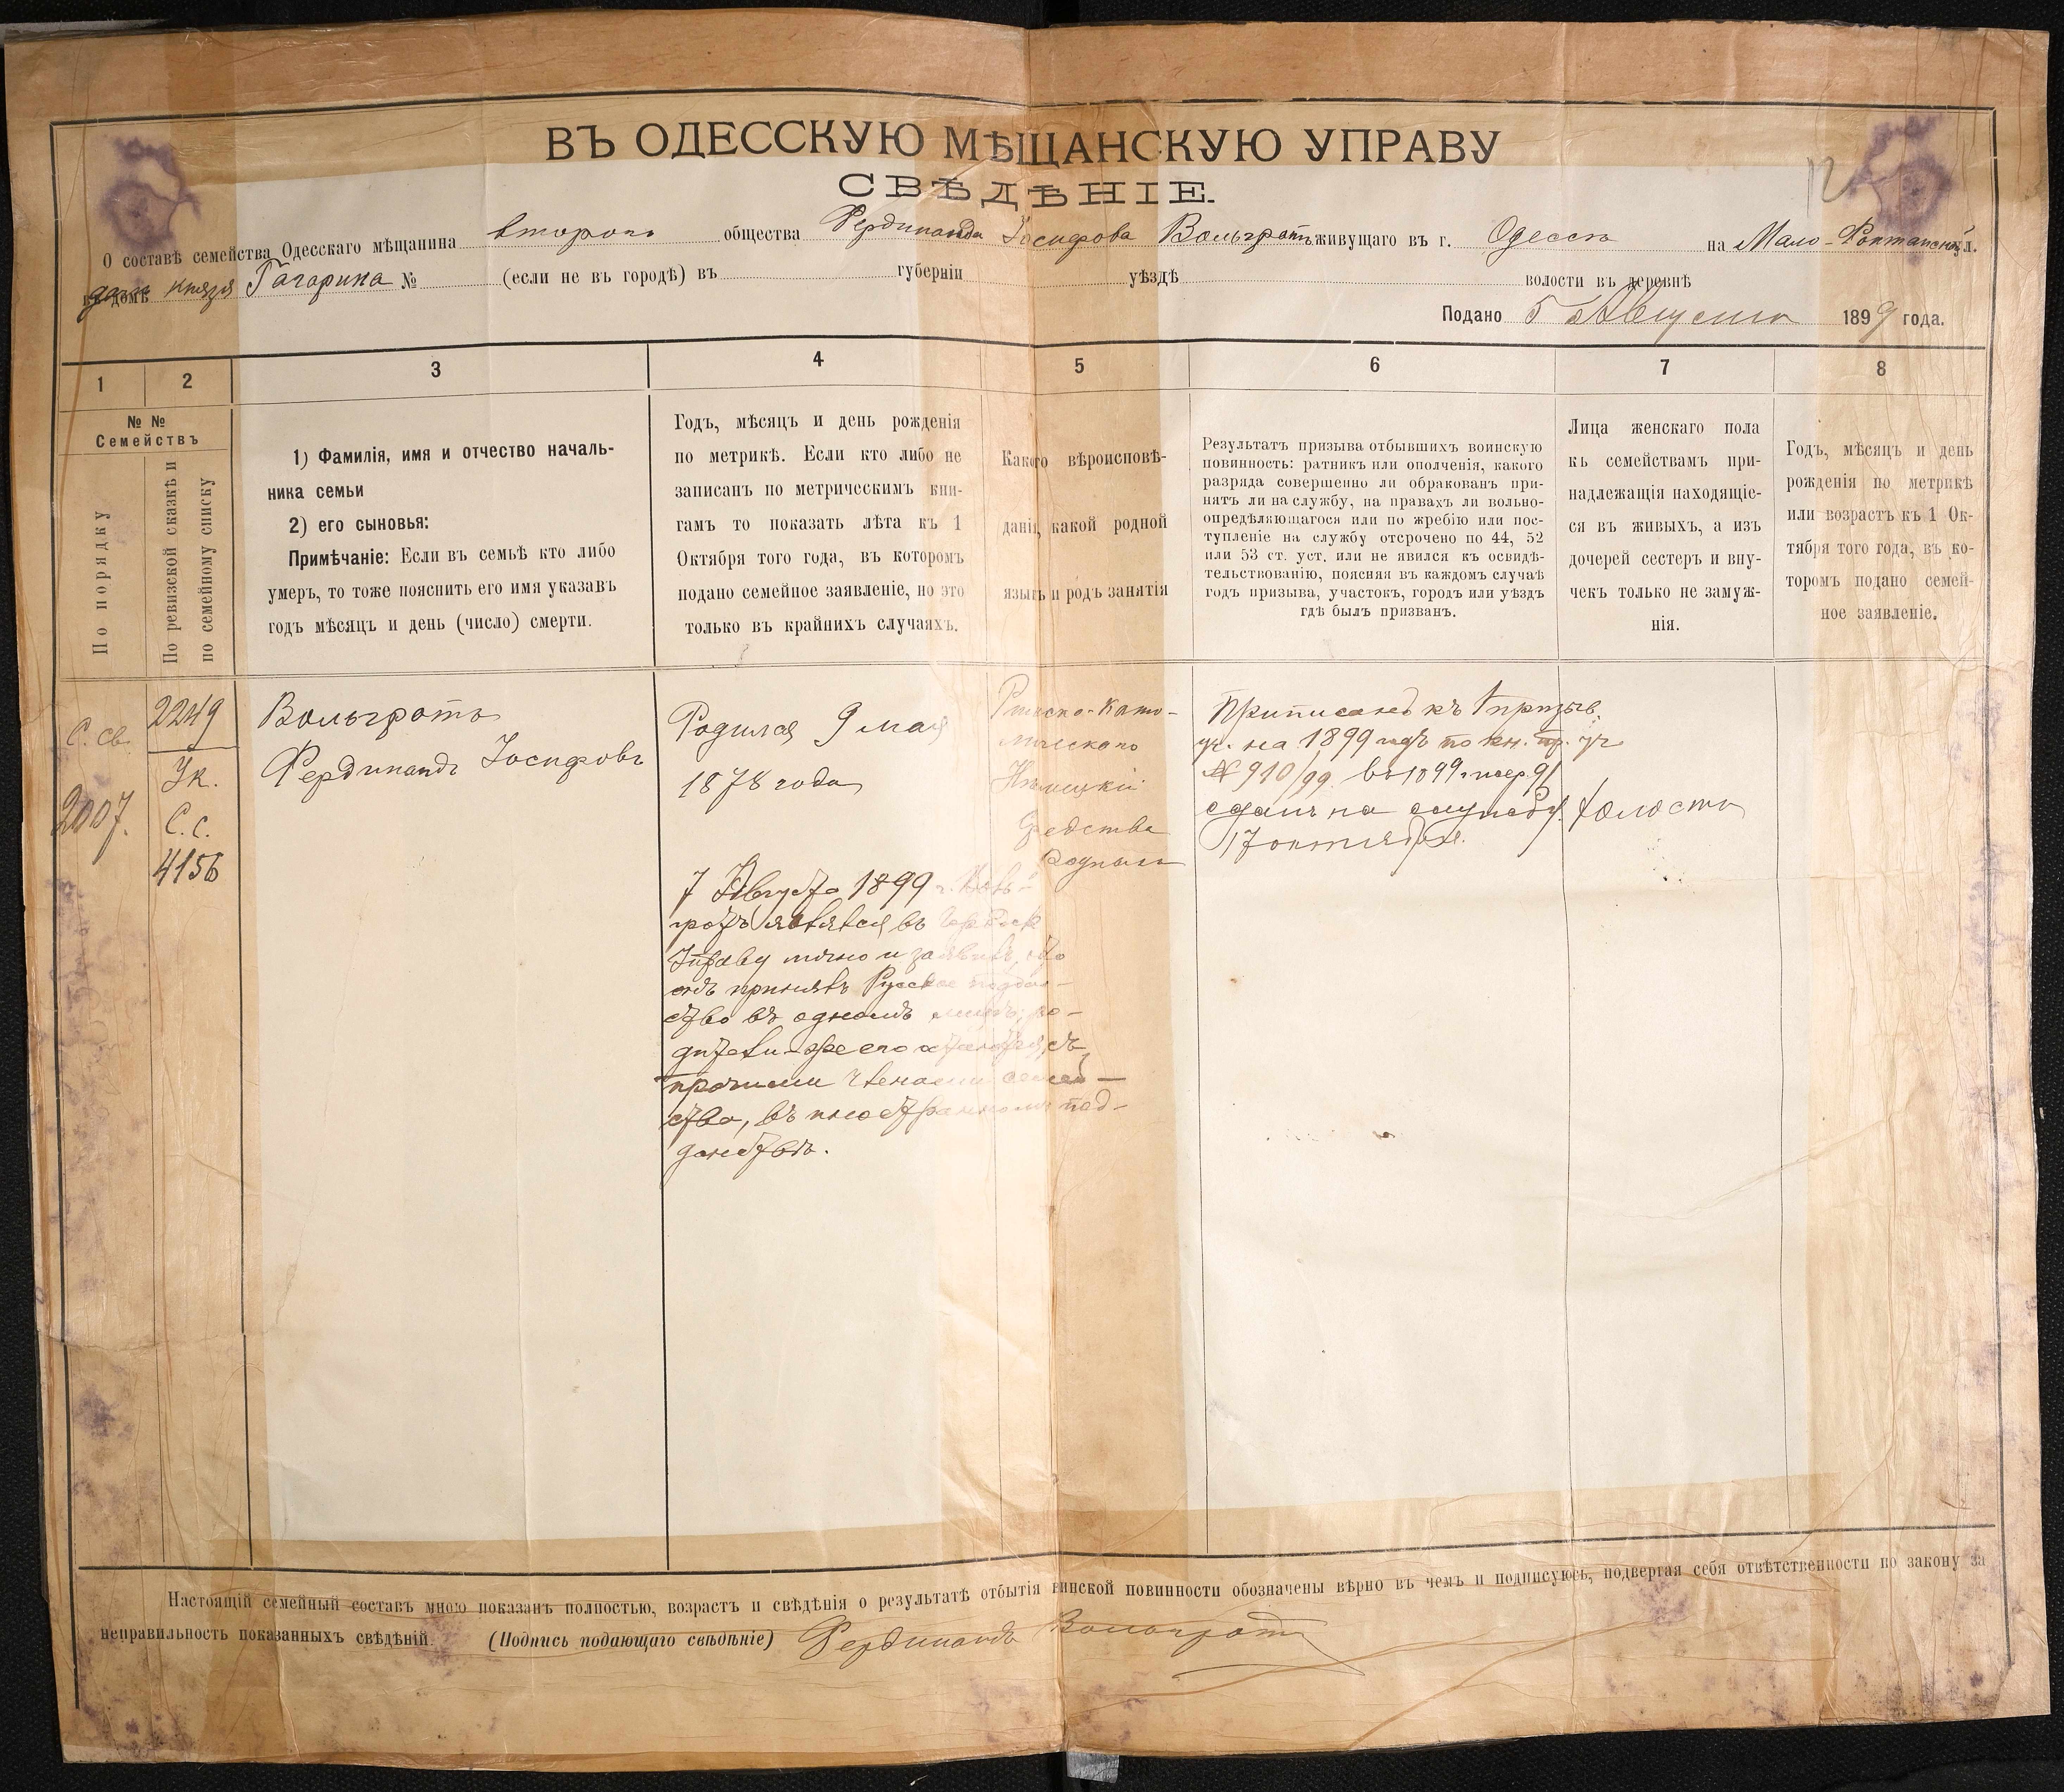 ВЪ ОДЕССКУЮ МѢЩАНСКУЮ УПРАВУ
12
СВѢДѢНІЕ.
О составѣ семейства Одесскаго мѣщанина второго общества Фердинанда Іосифова Вольгротъ живущаго въ г. Одессѣ на Мало-Фонтанской ул.
въ домѣ дача князя Гагарина № (если не въ городѣ) въ губерніи уѣздѣ волости въ деревнѣ
Подано 5 Августа 1899 года.
1 2 3 4 5 6 7 8
№ №
Семействъ
По порядку
По ревизской сказкѣ и
по семейному списку
1) Фамилія, имя и отчество началь-
ника семьи
2) его сыновья:
Примѣчаніе: Если въ семьѣ кто либо
умеръ, то тоже пояснить его имя указавъ
годъ мѣсяцъ и день (число) смерти.
Годъ, мѣсяцъ и день рожденія
по метрикѣ. Если кто либо не
записанъ по метрическимъ кни-
гамъ то показать лѣта къ 1
Октября того года, въ которомъ
подано семейное заявленіе, но это
только въ крайнихъ случаяхъ.
Какого вѣроисповѣ-
данія, какой родной
языкъ и родъ занятія
Результатъ призыва отбывшихъ воинскую
повинность: ратникъ или ополченія, какого
разряда совершенно ли обракованъ при-
нятъ ли на службу, на правахъ ли вольно-
опредѣляющагося или по жребію или пос-
тупленіе на службу отсрочено по 44, 52
или 53 ст. уст. или не явился къ освидѣ-
тельствованію, поясняя въ каждомъ случаѣ
годъ призыва, участокъ, городъ или уѣздъ
гдѣ былъ призванъ.
Лица женскаго пола
къ семействамъ при-
надлежащія находящіе-
ся въ живыхъ, а изъ
дочерей сестеръ и вну-
чекъ только не замуж-
нія.
Годъ, мѣсяцъ и день
рожденія по метрикѣ
или возрастъ къ 1 Ок-
тября того года, въ ко-
торомъ подано семей-
ное заявленіе.
С. св.
2007.
2249
Ук.
С. С.
4156
Вольгротъ
Фердинандъ Іосифовъ
Родился 9 мая
1878 года
7 Августа 1899 г. Воль-
гротъ явился въ
Управу лично и заявилъ, что
онъ принялъ Русское поддан-
ство въ одномъ лицѣ, ро-
дители-же его остаются, съ
прочими членами семей-
ства, въ иностранномъ под-
данствѣ.
Римско-като-
лическаго
Нѣмецкій
Средства
Приписанъ къ 1 призыв.
уч. на 1899 годъ по кн. пр. уч
№ 910/99. въ 1899 г. жер. 91
сданъ на службу.
17 октября.
холостъ
Настоящій семейный составъ мною показанъ полностью, возрастъ и свѣдѣнія о результатѣ отбытія винской повинности обозначены вѣрно въ чемъ и подписуюсь, подвергая себя отвѣтственности по закону за
неправильность показанныхъ свѣдѣній. (Подпись подающаго свѣдѣніе) Фердинандъ Вольгротъ